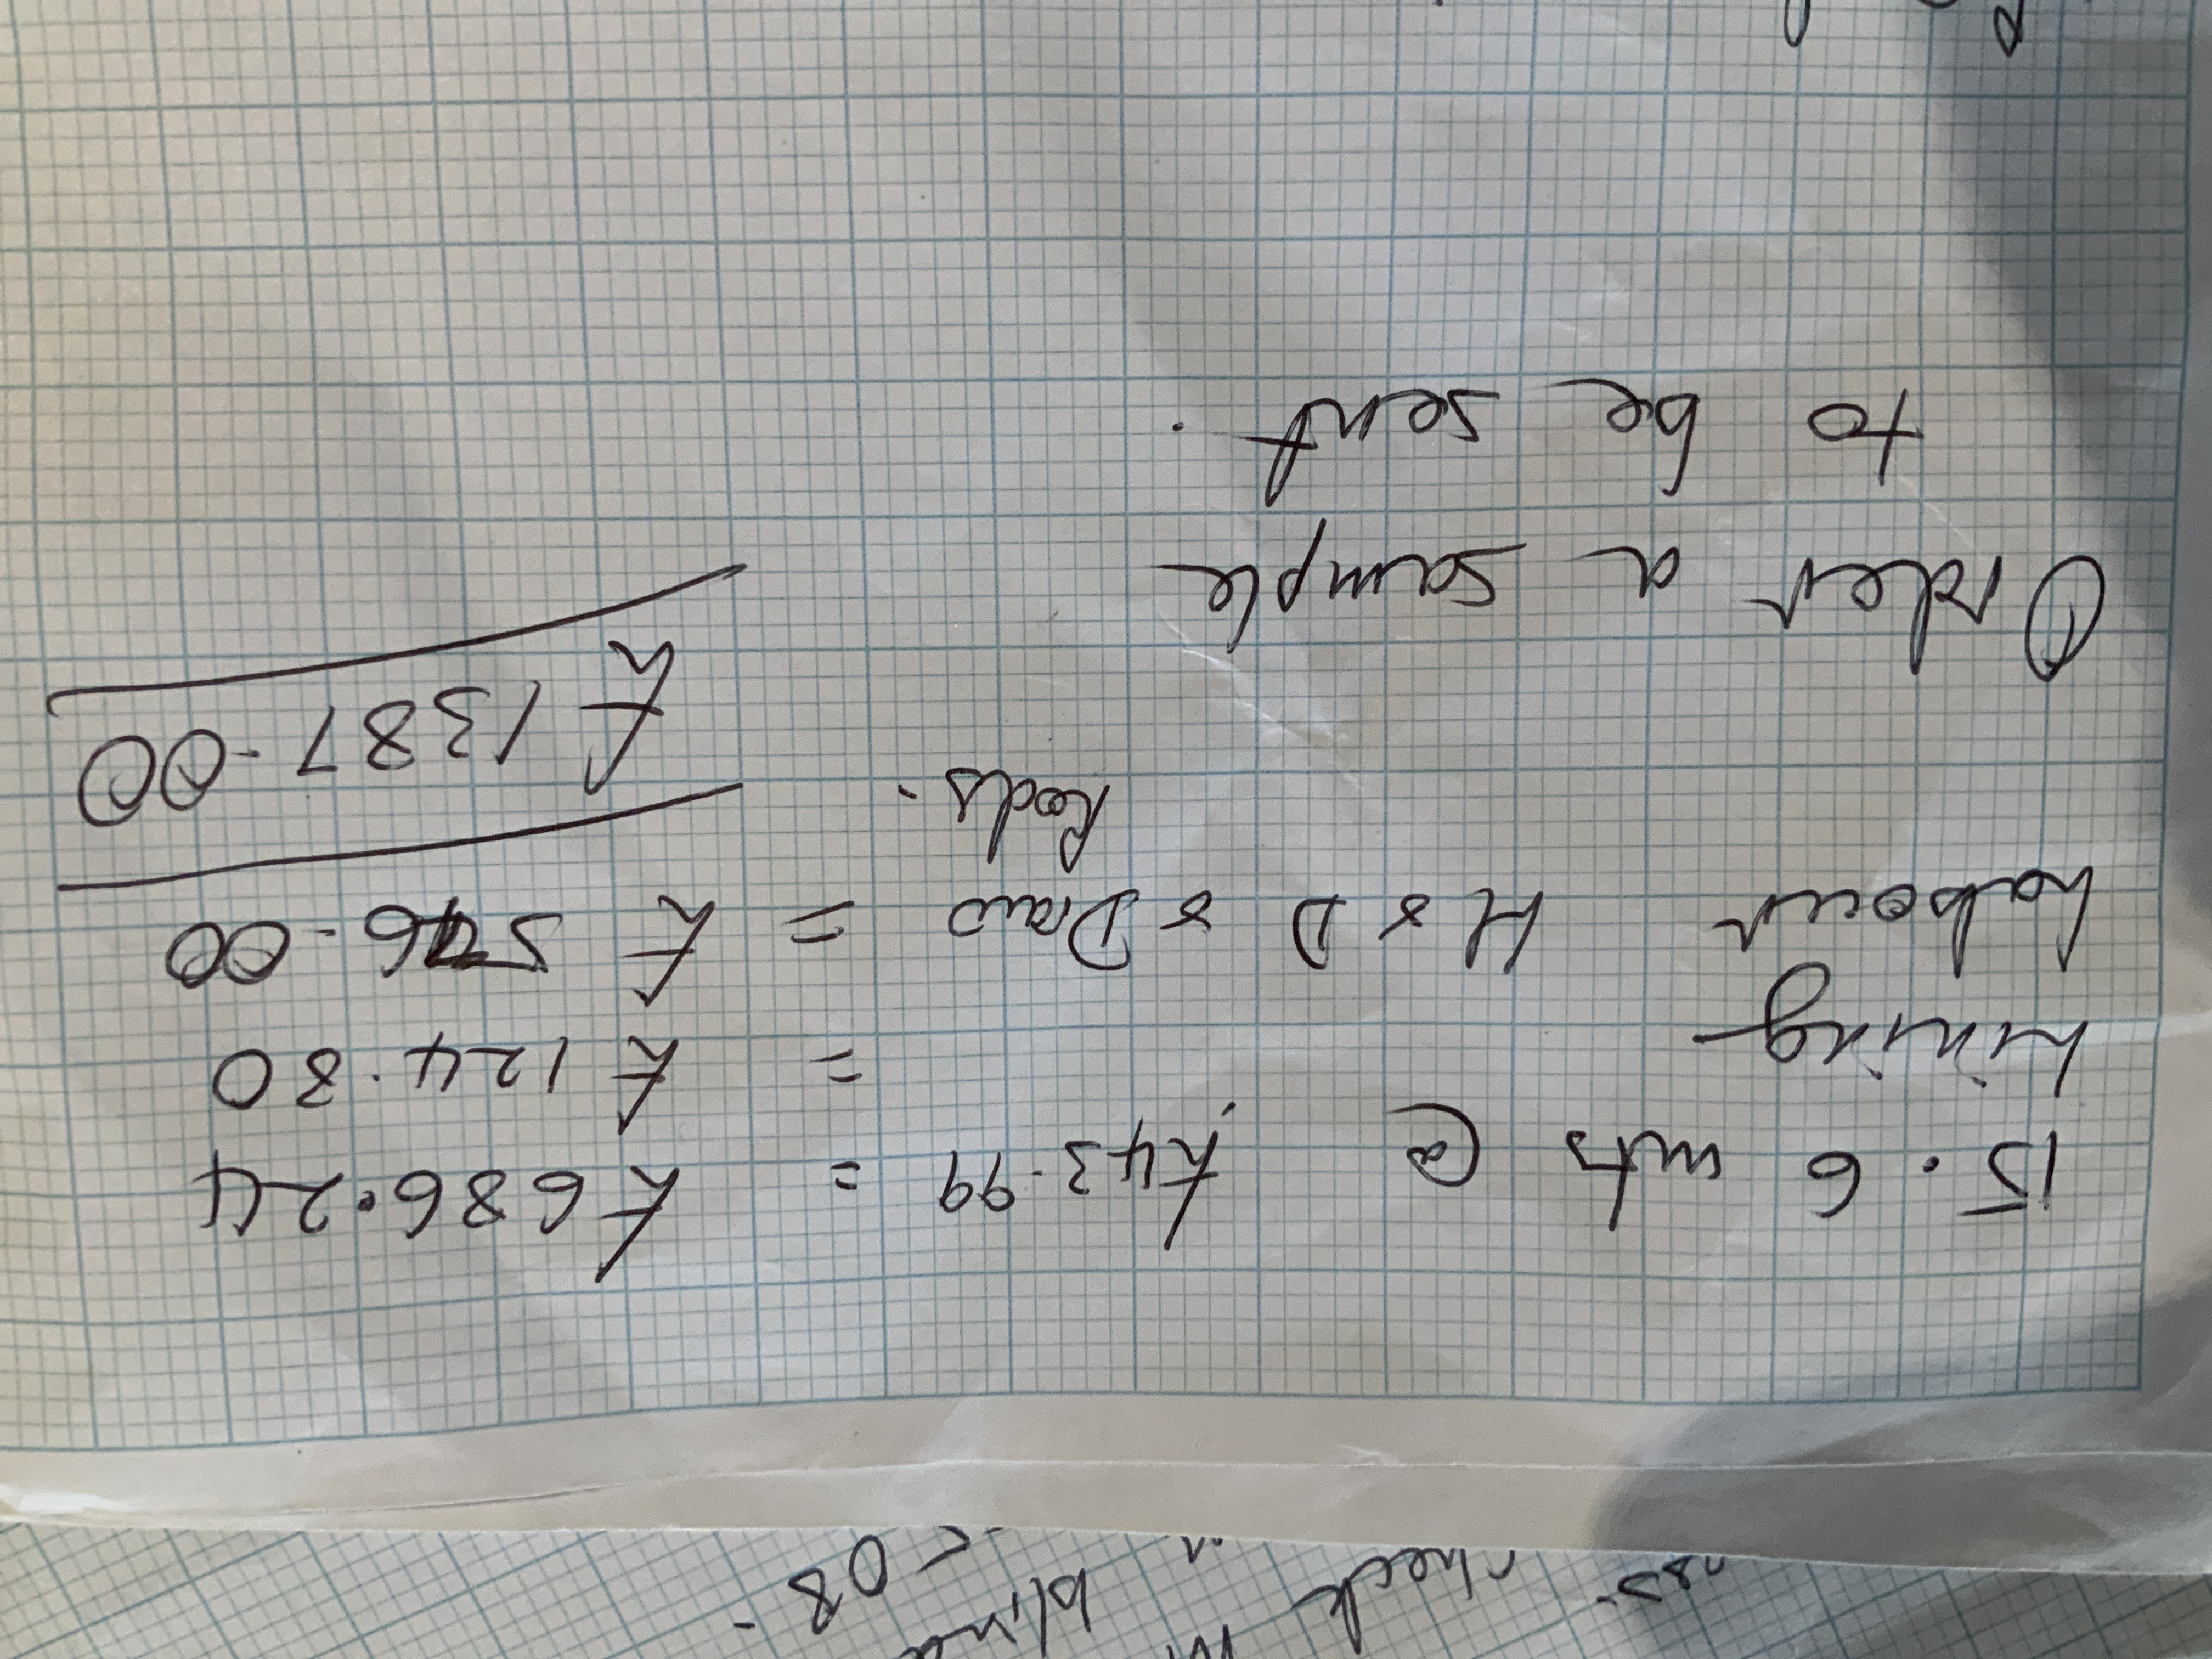 15.6 mts @ £43.99 = £686.24
Lining = £124.80
Labour H & D & Draw = £576-00
Rods.
£1387-00
Order a sample
to be sent.
check
blind